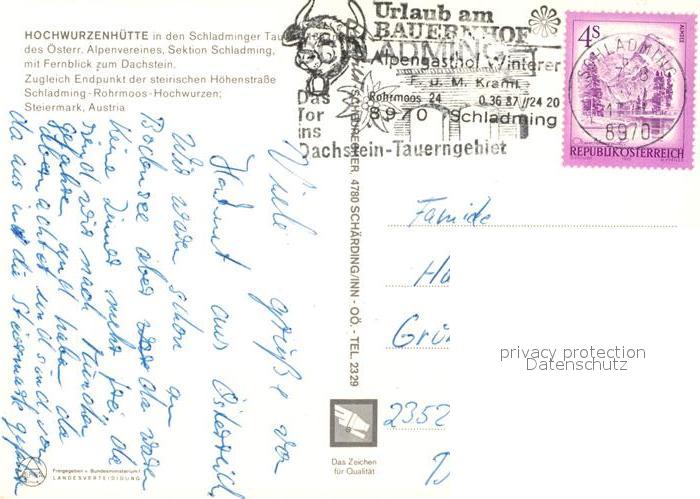 HOCHWURZENHÜTTE in den Schladminger
des Österr. Alpenvereines, Sektion Schladming,
mit Fernblick zum Dachstein.
Zugleich Endpunkt der steirischen Höhenstraße
Schladming-Rohrmoos-Hochwurzen;
Steiermark, Austria
Urlaub am
BAUERNHOF
Alpengasthof Winterer
F. u. M. Kraml
Rohrmoos 24 0 36 87 // 24 20
8970 Schladming
Das
Tor
ins
Dachstein-Tauerngebiet
SCHLADMING
8970
4S
ALMSEE
REPUBLIK ÖSTERREICH
4780 SCHÄRDING/INN - OÖ. - TEL. 23 29
Viele Grüße von
Hartmut aus Österreich
Wir waren schon am
Bodensee aber da waren
keine Zimmer mehr frei da
sind wir nach München
gefahren und haben da
übernachtet und sind von
da aus in die Steiermark gefahren
Familie
Ha
Grü
2352
privacy protection
Datenschutz
Das Zeichen
für Qualität
Freigegeben v. Bundesministerium f.
LANDESVERTEIDIGUNG